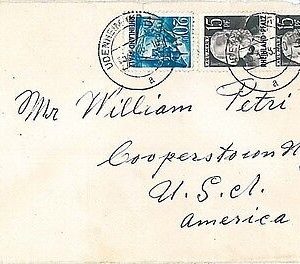 UDENHEIM
20
15
15
RHEINLAND-PFALZ
a
a
Mr William Petri
Cooperstown N
U.S.A.
America